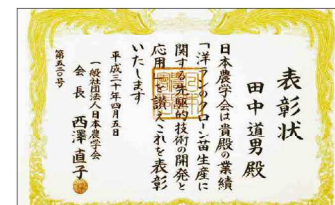 表彰状
田中道男殿
日本農学会は貴殿の業績
「洋ランのクローン苗生産に
関する先駆的技術の開発と
応用」を讃えこれを表彰
いたします
平成三十年四月五日
一般社団法人日本農学会
会長 西澤直子
第五三〇号